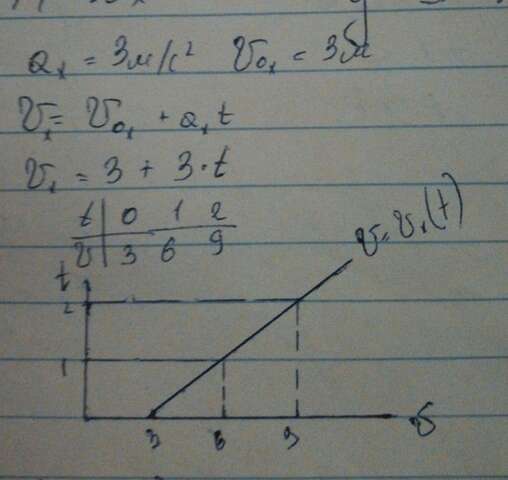 aₓ = 3м/с² v₀ₓ = 3м
vₓ = v₀ₓ + aₓt
vₓ = 3 + 3·t
t 0 1 2
v 3 6 9
v = vₓ(t)
t
2
1
3 6 9 v